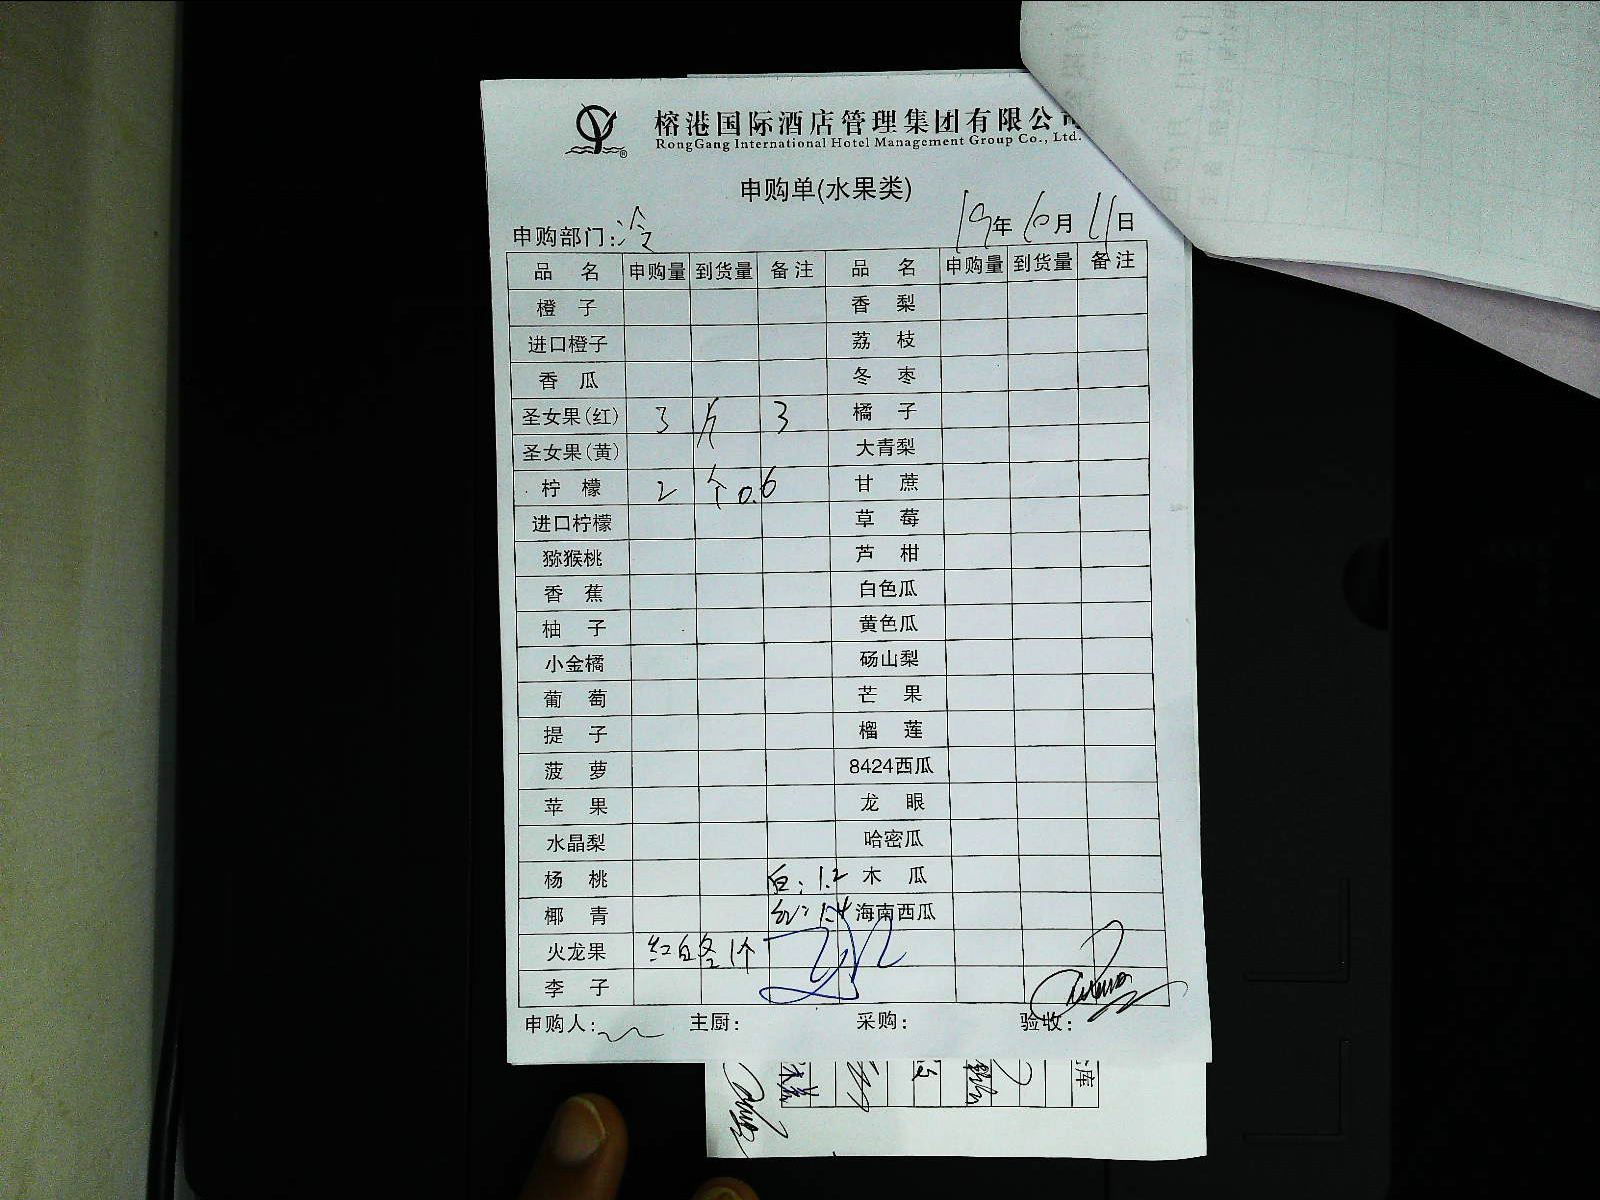 榕港国际酒店管理集团有限公
RongGang International Hotel Management Group Co., Ltd.
申购单(水果类)
申购部门:冷 19年10月11日
品名 申购量 到货量 备注 品名 申购量 到货量 备注
橙子 香梨
进口橙子 荔枝
香瓜 冬枣
圣女果(红) 3 斤 3 橘子
圣女果(黄) 大青梨
柠檬 2 个 0.6 甘蔗
进口柠檬 草莓
猕猴桃 芦柑
香蕉 白色瓜
柚子 黄色瓜
小金橘 砀山梨
葡萄 芒果
提子 榴莲
菠萝 8424西瓜
苹果 龙眼
水晶梨 哈密瓜
杨桃 白:1.2 木瓜
椰青 红:1.4 海南西瓜
火龙果 红白各1个
李子
申购人: 主厨: 采购: 验收:
库